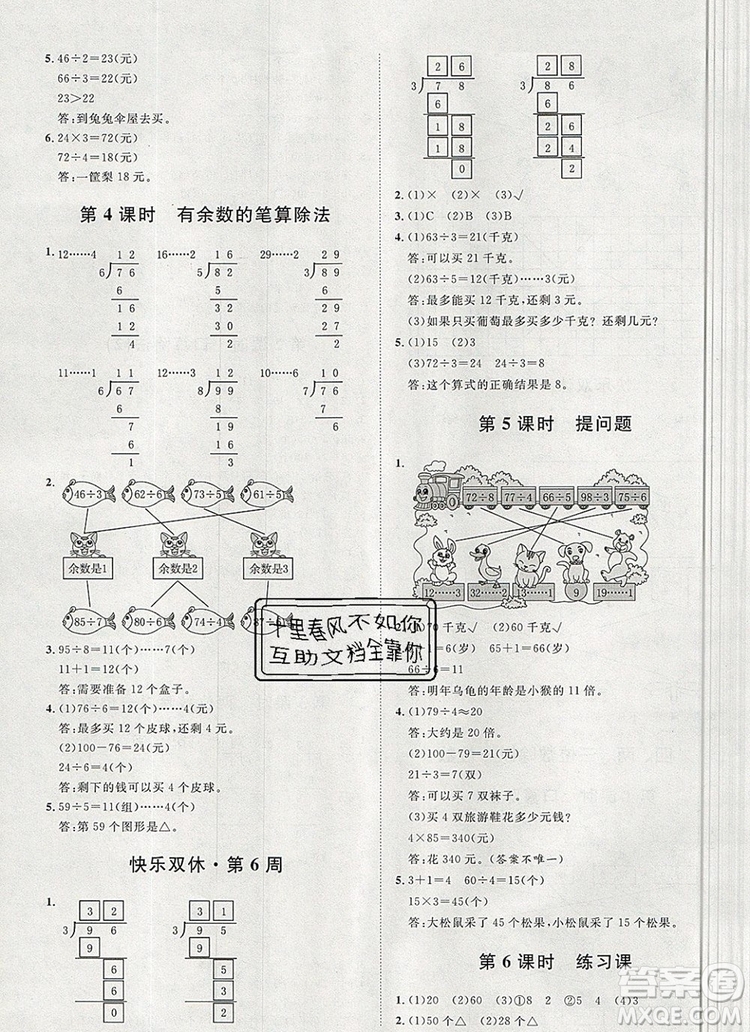 5. 46÷2=23(元)
66÷3=22(元)
23>22
答:到兔兔伞屋去买。
6. 24×3=72(元)
72÷4=18(元)
答:一筐梨 18 元。
第 4 课时 有余数的笔算除法
1. 12……4 16……2 29……2
1 2
6 7 6
6
1 6
1 2
4
1 6
5 8 2
5
3 2
3 0
2
2 9
3 8 9
6
2 9
2 7
2
11……1 12……3 10……6
1 1
6 6 7
6
7
6
1
1 2
8 9 9
8
1 9
1 6
3
1 0
7 7 6
7
6
2.
46÷3 64÷5 73÷5 61÷5
余数是1 余数是2 余数是3
85÷7
3. 95÷8=11(个)……7(个)
11+1=12(个)
答:需要准备 12 个盒子。
4. (1)76÷6=12(个)……4(元)
答:最多买 12 个皮球,还剩 4 元。
(2)100-76=24(元)
24÷6=4(个)
答:剩下的钱可以买 4 个皮球。
5. 59÷5=11(组)……4(个)
答:第 59 个图形是△。
快乐双休·第 6 周
1.
3 2
3 9 6
9
6
6
0
3 1
3 9 5
9
5
3
2
2 6
3 7 8
6
1 8
1 8
0
2 8
3 8 6
6
2. (1)× (2)× (3)√
3. (1)C (2)B (3)D
4. (1)63÷3=21(千克)
答:可以买 21 千克。
(2)63÷5=12(千克)……3(元)
答:最多能买 12 千克,还剩 3 元。
(3)如果只买葡萄最多买多少千克?还剩几元?
5. (1)15 (2)3
(3)72÷3=24 24÷3=8
答:这个算式的正确结果是 8。
第 5 课时 提问题
1.
72÷8 77÷4 66÷5 98÷3 75÷6
12……3 9 13……1
70 千克√ (2)60 千克√
1=66(岁) 5+1=6(岁)
66÷6=11
答:明年乌龟的年龄是小猴的 11 倍。
4. (1)79÷4≈20
答:大约是 20 倍。
(2)100-79=21(元)
21÷3=7(双)
答:可以买 7 双袜子。
(3)买 4 双旅游鞋花多少元钱?
4×85=340(元)
答:花 340 元。(答案不唯一)
5. 3+1=4 60÷4=15(个)
15×3=45(个)
答:大松鼠采了 45 个松果,小松鼠采了 15 个松果。
第 6 课时 练习课
1. (1)20 (2)60 (3)①8 2 ②5 4 (4)3
2. (1)50 个△ (2)28 个△
十里春风不如你
互助文档全靠你
答案圈
MXQE.COM